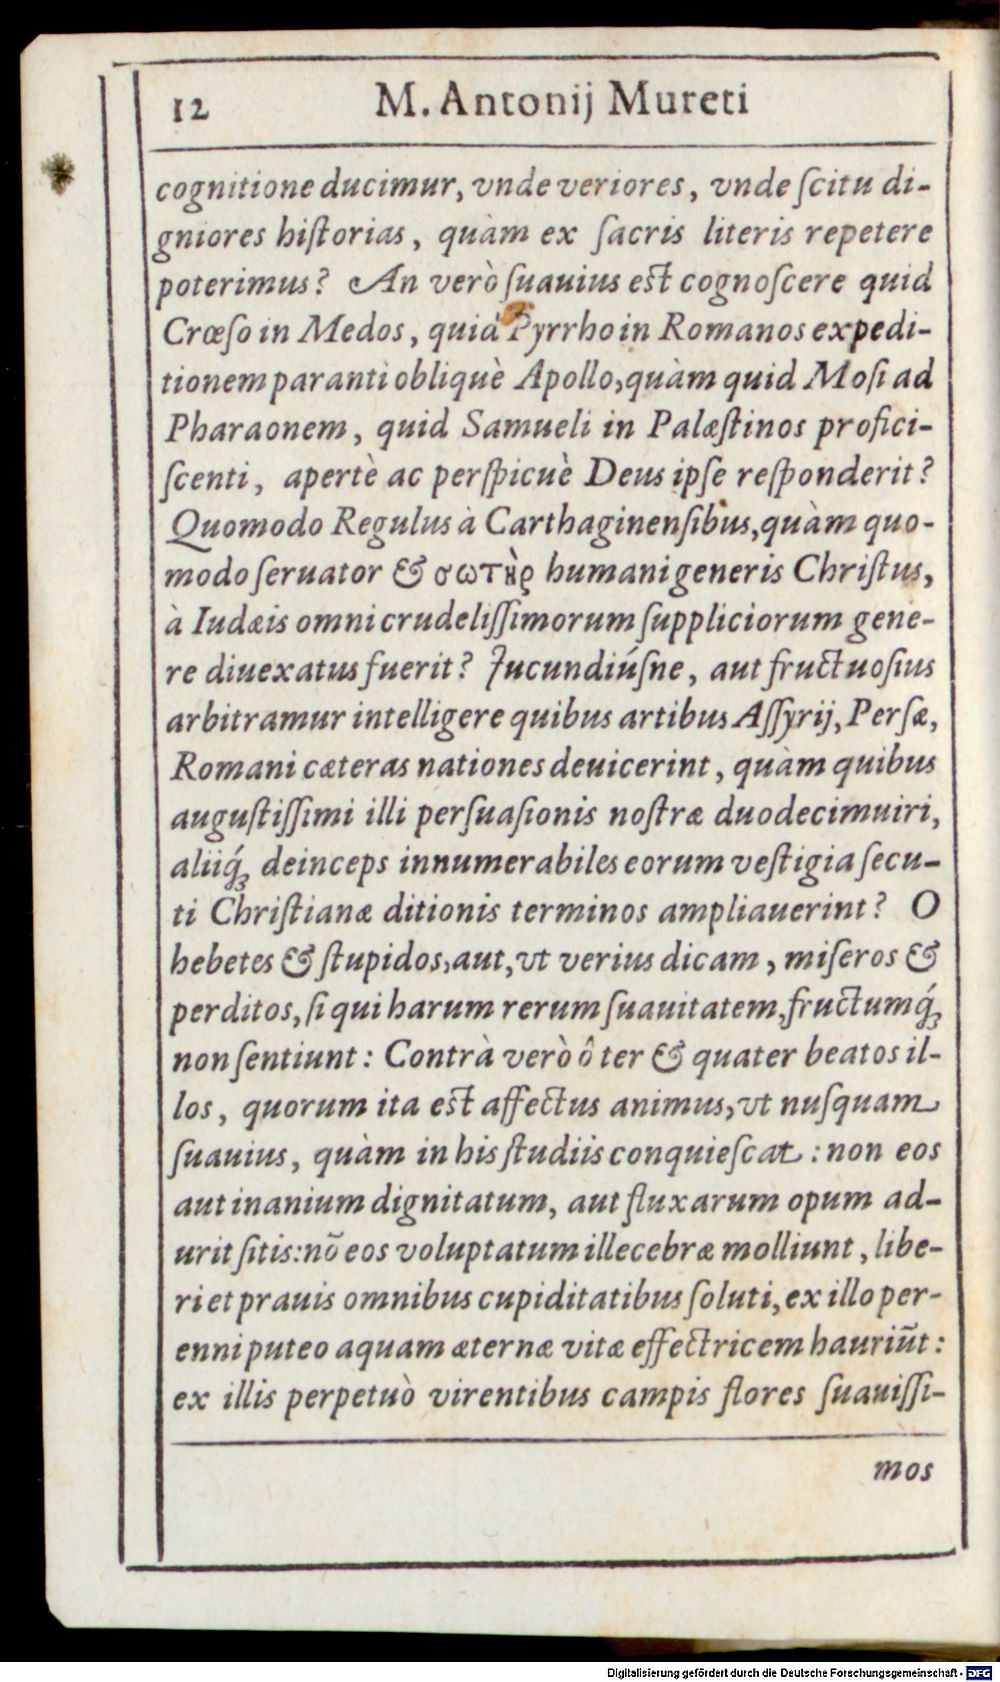 12 M. Antonij Mureti
cognitione ducimur, vnde veriores, vnde ſcitu di-
gniores hiſtorias, quàm ex ſacris literis repetere
poterimus? An verò ſuauius eſt cognoſcere quid
Crœſo in Medos, quid Pyrrho in Romanos expedi-
tionem paranti obliquè Apollo, quàm quid Moſi ad
Pharaonem, quid Samueli in Palæſtinos profici-
ſcenti, apertè ac perſpicuè Deus ipſe reſponderit?
Quomodo Regulus à Carthaginenſibus, quàm quo-
modo ſeruator & σωτὴρ humani generis Chriſtus,
à Iudæis omni crudeliſſimorum ſuppliciorum gene-
re diuexatus fuerit? Jucundiúſne, aut fructuoſius
arbitramur intelligere quibus artibus Aſſyrij, Perſæ,
Romani cæteras nationes deuicerint, quàm quibus
auguſtiſſimi illi perſuaſionis noſtræ duodecimuiri,
aliiq́; deinceps innumerabiles eorum veſtigia ſecu-
ti Chriſtianæ ditionis terminos ampliauerint? O
hebetes & ſtupidos, aut, vt verius dicam, miſeros &
perditos, ſi qui harum rerum ſuauitatem, fructumq́;
non ſentiunt: Contrà verò ô ter & quater beatos il-
los, quorum ita eſt affectus animus, vt nuſquam
ſuauius, quàm in his ſtudiis conquieſcat: non eos
aut inanium dignitatum, aut fluxarum opum ad-
urit ſitis: nō eos voluptatum illecebræ molliunt, libe-
ri et prauis omnibus cupiditatibus ſoluti, ex illo per-
enni puteo aquam æternæ vitæ effectricem hauriūt:
ex illis perpetuò virentibus campis flores ſuauiſſi-
mos
Digitalisierung gefördert durch die Deutsche Forschungsgemeinschaft - DFG